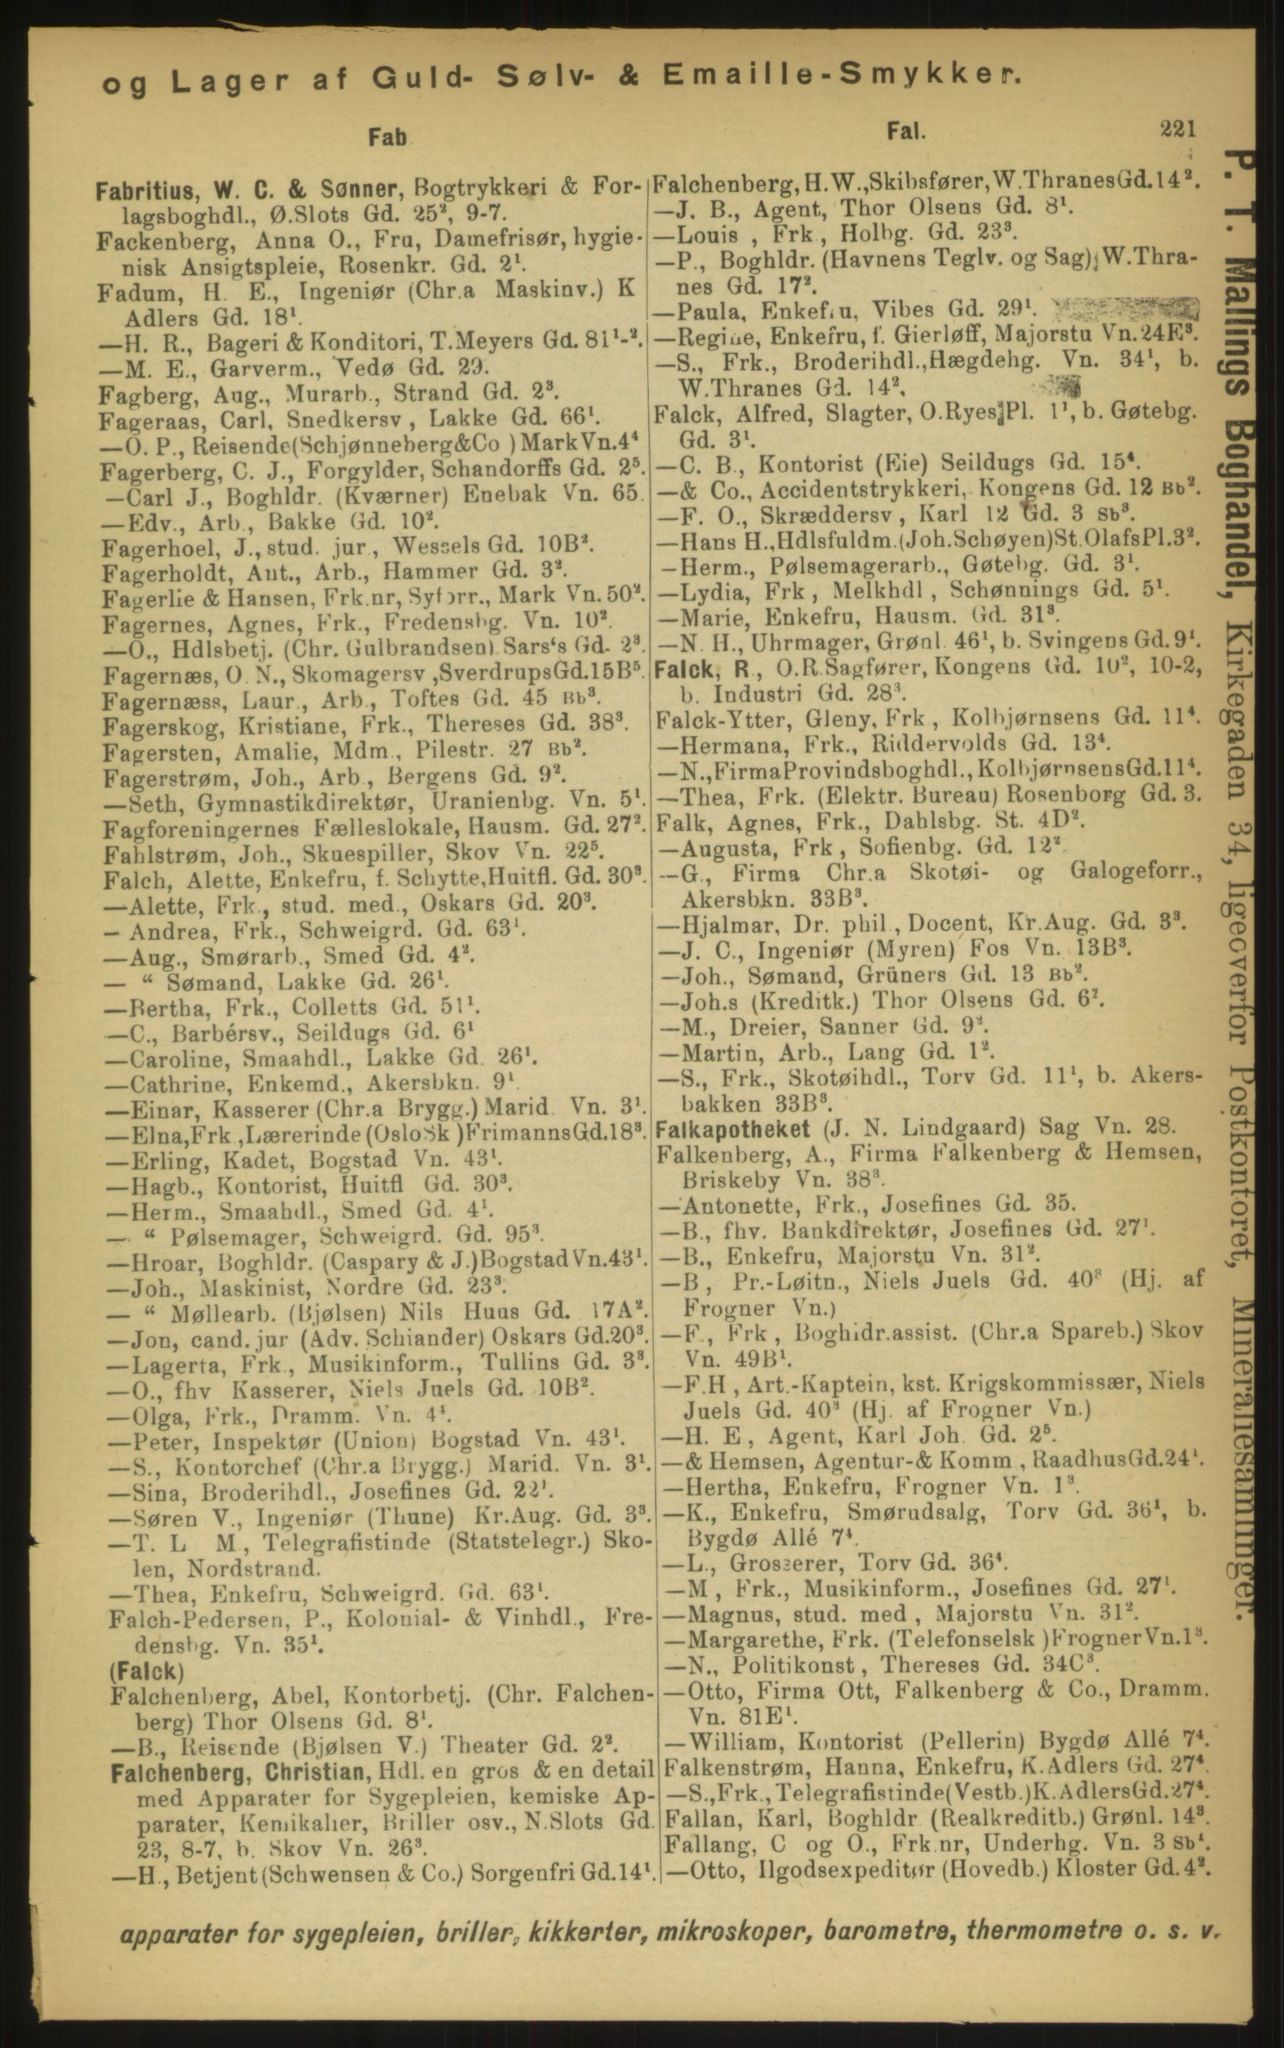 og Lager af Guld- Sølv- & Emaille-Smykker.
Fab
Fal.
221
Fabritius, W. C. & Sønner, Bogtrykkeri & For-
lagsboghdl., Ø.Slots Gd. 25², 9-7.
Fackenberg, Anna O., Fru, Damefrisør, hygie-
nisk Ansigtspleie, Rosenkr. Gd. 2¹.
Fadum, H. E., Ingeniør (Chr.a Maskinv.) K
Adlers Gd. 18¹.
—H. R., Bageri & Konditori, T.Meyers Gd. 81¹-².
—M. E., Garverm., Vedø Gd. 29.
Fagberg, Aug., Murarb., Strand Gd. 2³.
Fageraas, Carl, Snedkersv, Lakke Gd. 66¹.
—O. P., Reisende(Schjønneberg&Co )MarkVn.4⁴
Fagerberg, C. J., Forgylder, Schandorffs Gd. 2⁵.
—Carl J., Boghldr. (Kværner) Enebak Vn. 65.
—Edv., Arb., Bakke Gd. 10².
Fagerhoel, J., stud. jur., Wessels Gd. 10B².
Fagerholdt, Ant., Arb., Hammer Gd. 3².
Fagerlie & Hansen, Frk.nr, Syforr., Mark Vn. 50².
Fagernes, Agnes, Frk., Fredensbg. Vn. 10².
—O., Hdlsbetj. (Chr. Gulbrandsen) Sars's Gd- 2³.
Fagernæs, O N., Skomagersv ,SverdrupsGd.15B⁵.
Fagernæss, Laur., Arb., Toftes Gd. 45 Bb³.
Fagerskog, Kristiane, Frk., Thereses Gd. 38³.
Fagersten, Amalie, Mdm., Pilestr. 27 Bb².
Fagerstrøm, Joh., Arb., Bergens Gd. 9².
—Seth, Gymnastikdirektør, Uranienbg. Vn. 5¹.
Fagforeningernes Fælleslokale, Hausm. Gd. 27².
Fahlstrøm, Joh., Skuespiller, Skov Vn. 22⁵.
Falch, Alette, Enkefru, f. Schytte,Huitfl. Gd. 30³.
—Alette, Frk., stud. med., Oskars Gd. 20³.
- Andrea, Frk., Schweigrd. Gd. 63¹.
—Aug., Smørarb., Smed Gd. 4².
— “ Sømand, Lakke Gd. 26¹.
—Bertha, Frk., Colletts Gd. 51¹.
—C., Barbérsv., Seildugs Gd. 6¹
—Caroline, Smaahdl., Lakke Gd. 26¹.
—Cathrine, Enkemd., Akersbkn. 9¹.
—Einar, Kasserer (Chr.a Brygg.) Marid. Vn. 3¹.
—Elna,Frk ,Lærerinde(OsloSk )FrimannsGd.18³.
—Erling, Kadet, Bogstad Vn. 43¹.
—Hagb., Kontorist, Huitfl Gd. 30³.
—Herm., Smaahdl., Smed Gd. 4¹.
— “ Pølsemager, Schweigrd. Gd. 95³.
—Hroar, Boghldr. (Caspary & J.)BogstadVn.43¹.
—Joh., Maskinist, Nordre Gd. 23³.
— “ Møllearb. (Bjølsen) Nils Huus Gd. 17A².
—Jon, cand. jur (Adv. Schiander) Oskars Gd.20³.
—Lagerta, Frk., Musikinform., Tullins Gd. 3³.
—O., fhv Kasserer, Niels Juels Gd. 10B².
—Olga, Frk., Dramm. Vn. 4⁴.
—Peter, Inspektør (Union) Bogstad Vn. 43¹.
—S., Kontorchef (Chr.a Brygg.) Marid. Vn. 3¹.
—Sina, Broderihdl., Josefines Gd. 22¹.
—Søren V., Ingeniør (Thune) Kr.Aug. Gd. 3³.
—T. L M, Telegrafistinde (Statstelegr.) Sko-
len, Nordstrand.
—Thea, Enkefru, Schweigrd. Gd. 63¹.
Falch-Pedersen, P., Kolonial- & Vinhdl., Fre-
densbg. Vn. 35¹.
(Falck)
Falchenberg, Abel, Kontorbetj. (Chr. Falchen-
berg) Thor Olsens Gd. 8¹.
—B., Reisende (Bjølsen V.) Theater Gd. 2².
Falchenberg, Christian, Hdl. en gros & en detail
med Apparater for Sygepleien, kemiske Ap-
parater, Kemikalier, Briller osv., N.Slots Gd.
23, 8-7, b. Skov Vn. 26³.
—H, Betjent (Schwensen & Co.) Sorgenfri Gd.14¹.
Falchenberg, H.W.,Skibsfører,W.ThranesGd.14².
—J. B., Agent, Thor Olsens Gd. 8¹.
—Louis, Frk, Holbg. Gd. 23³.
—P., Boghldr. (Havnens Teglv. og Sag), W.Thra-
nes Gd. 17².
—Paula, Enkefru, Vibes Gd. 29¹.
—Regine, Enkefru, f. Gierløff, Majorstu Vn.24E³.
—S., Frk., Broderihdl.,Hægdehg. Vn. 34¹, b.
W.Thranes Gd. 14².
Falck, Alfred, Slagter, O.Ryes Pl. 1¹, b. Gøtebg.
Gd. 3¹.
—C. B., Kontorist (Eie) Seildugs Gd. 15⁴.
—& Co., Accidentstrykkeri, Kongens Gd. 12 Bb².
—F. O., Skræddersv, Karl 12 Gd. 3 Sb³.
—Hans H.,Hdlsfuldm.(Joh.Schøyen)St.OlafsPl.3².
—Herm., Pølsemagerarb., Gøtebg. Gd. 3¹.
—Lydia, Frk, Melkhdl, Schønnings Gd. 5¹.
—Marie, Enkefru, Hausm. Gd. 31³.
—N. H., Uhrmager, Grønl 46¹, b. Svingens Gd. 9¹.
Falck, R, O.R.Sagfører, Kongens Gd. 10², 10-2,
b. Industri Gd. 28³.
Falck-Ytter, Gleny, Frk, Kolbjørnsens Gd. 11⁴.
—Hermana, Frk., Riddervolds Gd. 13⁴.
—N.,FirmaProvindsboghdl.,KolbjørnsensGd.11⁴.
—Thea, Frk. (Elektr. Bureau) Rosenborg Gd. 3.
Falk, Agnes, Frk., Dahlsbg. St. 4D².
—Augusta, Frk, Sofienbg. Gd. 12²
—G., Firma Chr.a Skotøi- og Galogeforr.,
Akersbkn. 33B³.
—Hjalmar, Dr. phil, Docent, Kr.Aug. Gd. 3³.
—J. C., Ingeniør (Myren) Fos Vn. 13B³.
—Joh., Sømand, Grüners Gd. 13 Bb².
—Joh.s (Kreditk.) Thor Olsens Gd. 6².
—M., Dreier, Sanner Gd. 9².
—Martin, Arb., Lang Gd. 1².
—S., Frk., Skotøihdl., Torv Gd. 11¹, b. Akers-
bakken 33B³.
Falkapotheket (J. N. Lindgaard) Sag Vn. 28.
Falkenberg, A., Firma Falkenberg & Hemsen,
Briskeby Vn. 38³.
—Antonette, Frk., Josefines Gd. 35.
—B., fhv. Bankdirektør, Josefines Gd. 27¹.
—B., Enkefru, Majorstu Vn. 31².
—B, Pr.-Løitn., Niels Juels Gd. 40³ (Hj. af
Frogner Vn.)
—F., Frk, Boghldr.assist. (Chr.a Spareb.) Skov
Vn. 49B¹.
—F.H, Art.-Kaptein, kst. Krigskommissær, Niels
Juels Gd. 40³ (Hj. af Frogner Vn.)
—H. E, Agent, Karl Joh. Gd. 2⁵.
—& Hemsen, Agentur-& Komm, RaadhusGd.24¹.
—Hertha, Enkefru, Frogner Vn. 1³.
—K., Enkefru, Smørudsalg, Torv Gd. 36¹, b.
Bygdø Allé 7⁴.
—L., Grosserer, Torv Gd. 36⁴.
—M, Frk., Musikinform., Josefines Gd. 27¹.
—Magnus, stud. med, Majorstu Vn. 31².
—Margarethe, Frk. (Telefonselsk )FrognerVn.1³.
—N., Politikonst, Thereses Gd. 34C³.
—Otto, Firma Ott, Falkenberg & Co., Dramm.
Vn. 81E¹.
—William, Kontorist (Pellerin) Bygdø Allé 7⁴.
Falkenstrøm, Hanna, Enkefru, K.Adlers Gd. 27⁴.
—S.,Frk.,Telegrafistinde(Vestb.)K.AdlersGd.27⁴.
Fallan, Karl, Boghldr (Realkreditb.) Grønl. 14³.
Fallang, C og O., Frk.nr, Underhg. Vn. 3 Sb¹.
—Otto, Ilgodsexpeditør (Hovedb.) Kloster Gd. 4².
P. T. Mallings Boghandel, Kirkegaden 34, ligeoverfor Postkontoret, Mineraliesamlinger.
apparater for sygepleien, briller, kikkerter, mikroskoper, barometre, thermometre o. s. v.